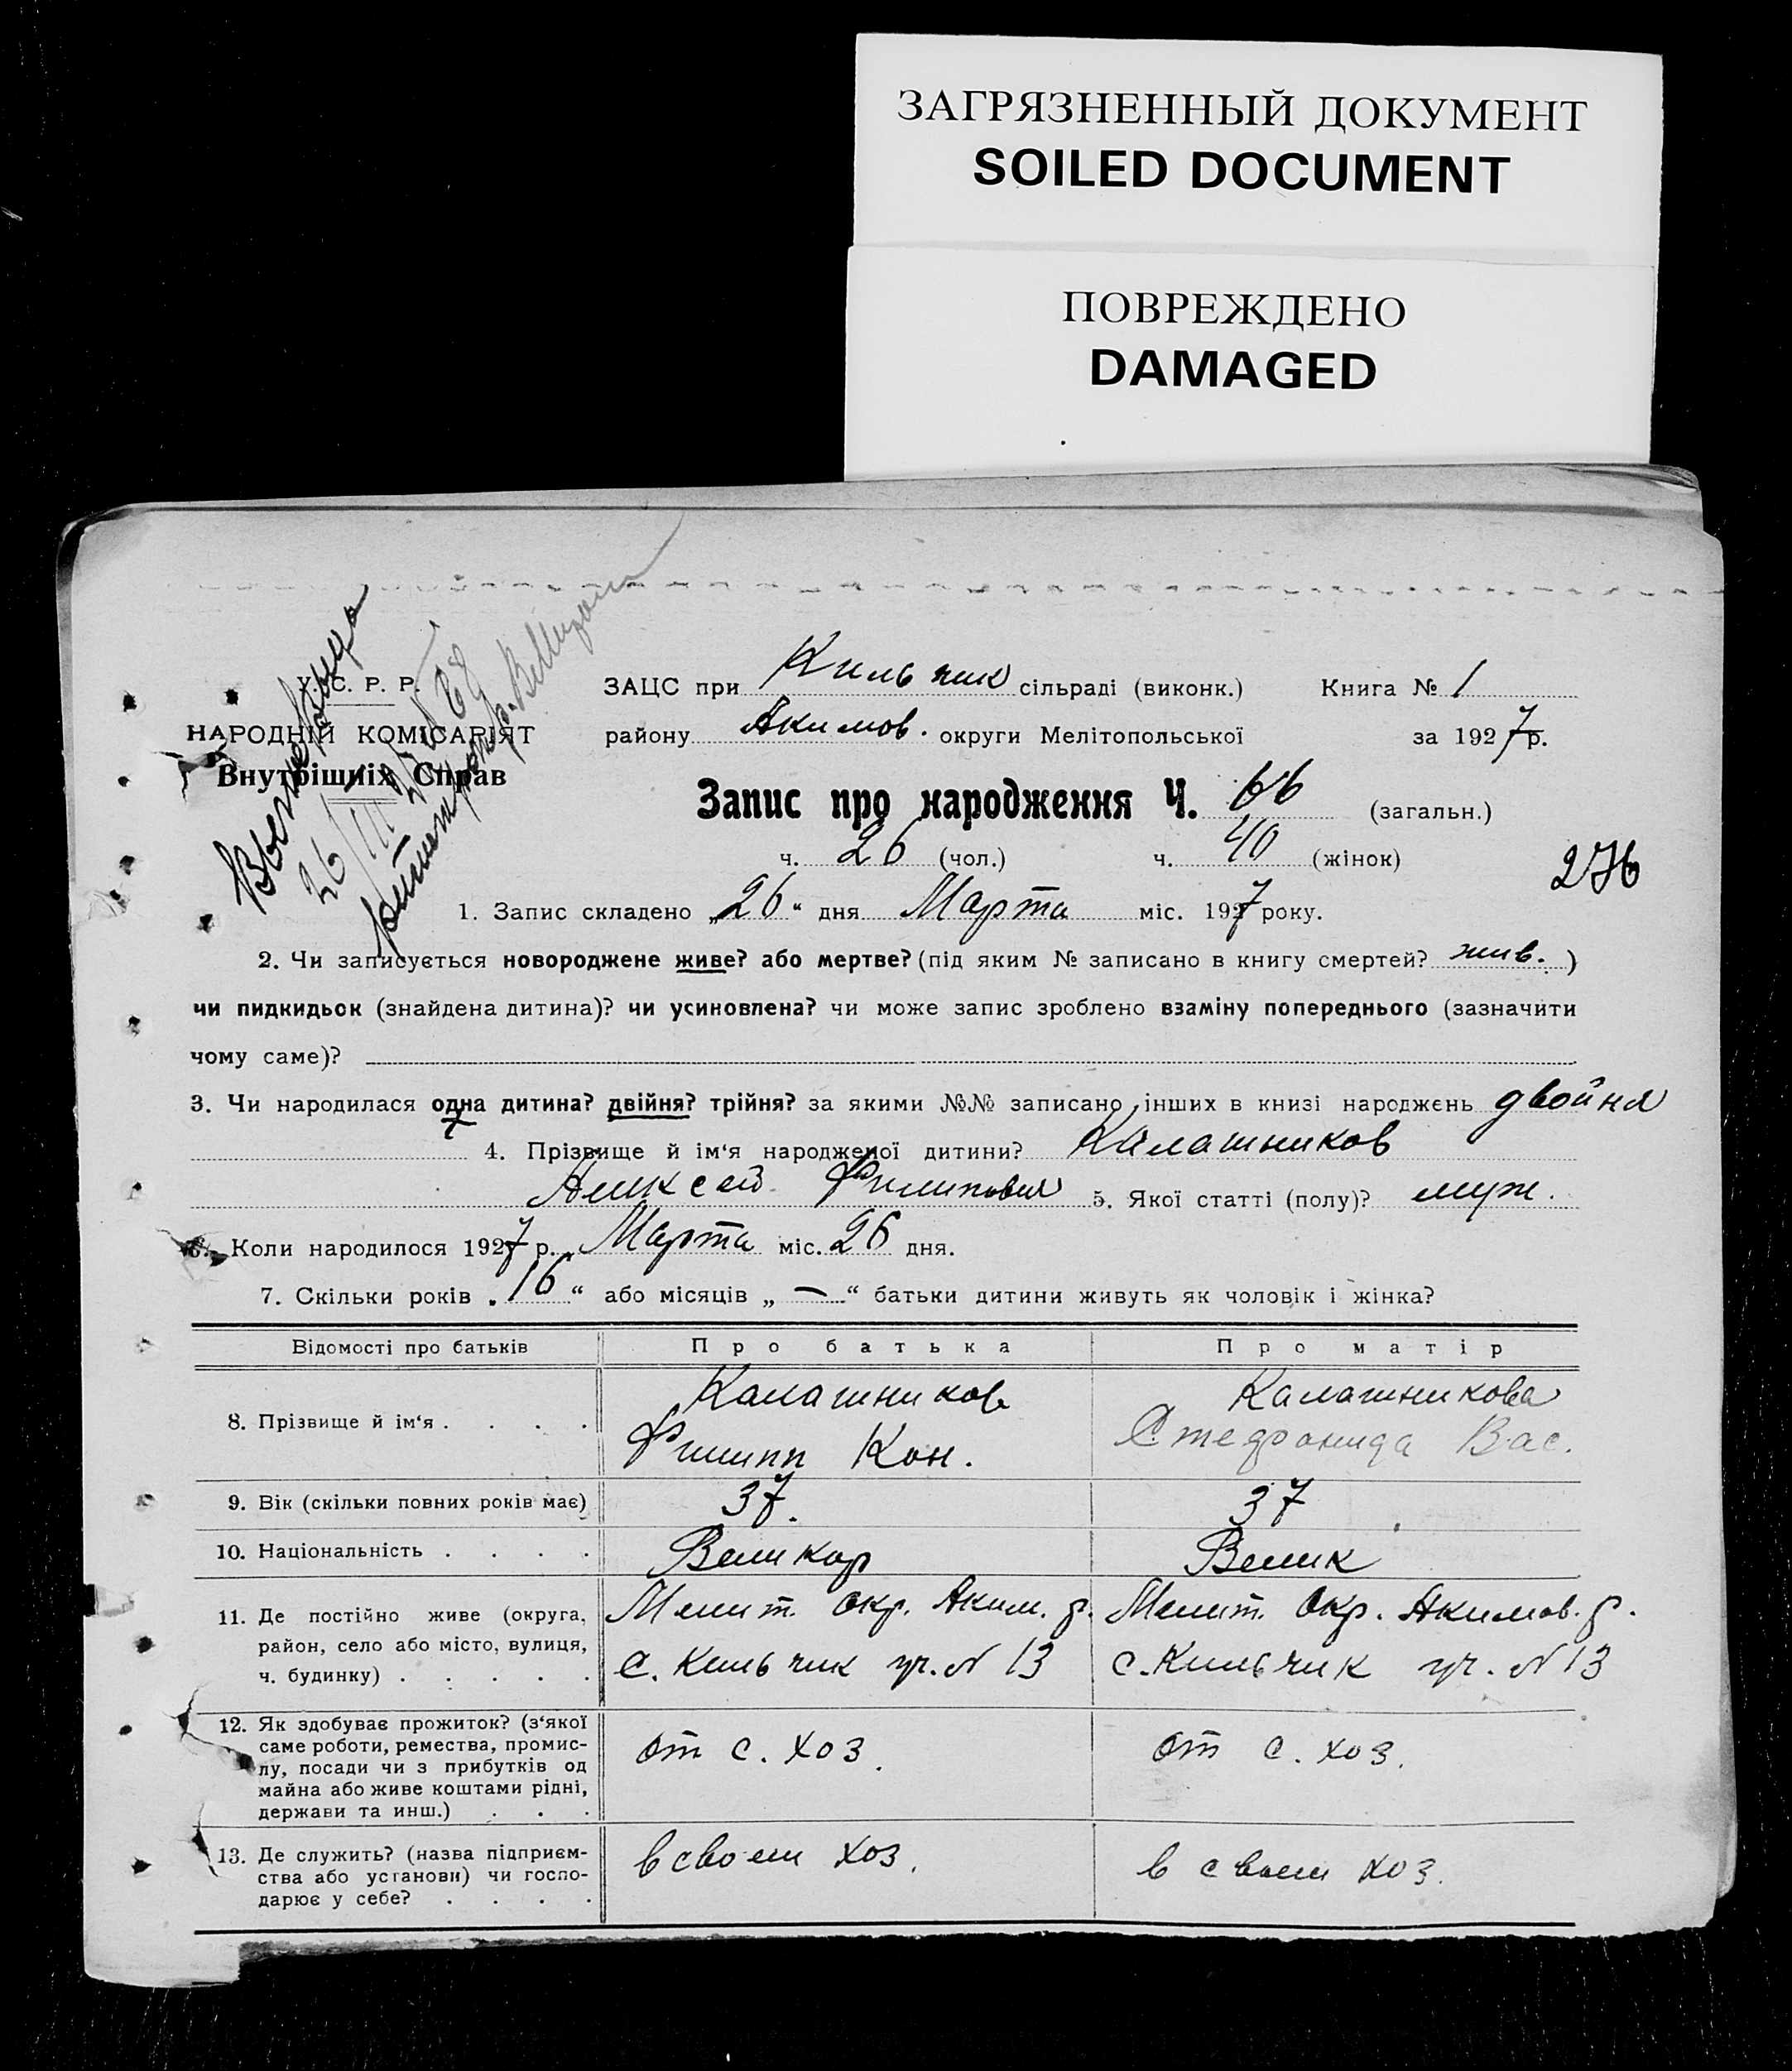 ЗАГРЯЗНЕННЫЙ ДОКУМЕНТ
SOILED DOCUMENT
ПОВРЕЖДЕНО
DAMAGED
У. С. Р. Р.
НАРОДНІЙ КОМІСАРІЯТ
Внутрішніх Справ
ЗАЦС при Кильчик сільраді (виконк.) Книга № 1
району Акимов. округи Мелітопольської за 1927 р.
Запис про народження Ч. 66 (загальн.)
ч. 26 (чол.) ч. 40 (жінок)
276
1. Запис складено „26“ дня Марта міс. 1927 року.
2. Чи записується новороджене живе? або мертве? (під яким № записано в книгу смертей? жив. )
чи пидкидьок (знайдена дитина)? чи усиновлена? чи може запис зроблено взаміну попереднього (зазначити
чому саме)?
3. Чи народилася одна дитина? двійня? трійня? за якими №№ записано інших в книзі народжень двойня
4. Прізвище й ім'я народженої дитини? Калашников
Аликсей Филипович 5. Якої статті (полу)? муж.
6. Коли народилося 1927 р. „ Марта міс. 26 дня.
7. Скільки років „16“ або місяців „ — “ батьки дитини живуть як чоловік і жінка?
Відомості про батьків Про батька Про матір
8. Прізвище й ім'я . . . . Калашников Калашникова
Филипп Кон. Стефонида Вас.
9. Вік (скільки повних років має) 37. 37
10. Національність . . . . Великор Велик
11. Де постійно живе (округа, район, село або місто, вулиця, ч. будинку) . . . . . Мелит. окр. Аким. р. Мелит. Окр. Акимов. р.
с. Кильчик уч. N 13 с. Кильчик уч. N 13
12. Як здобуває прожиток? (з'якої
саме роботи, ремества, промис-
лу, посади чи з прибутків од
майна або живе коштами рідні,
держави та инш.) . . . от с. хоз. от с. хоз.
13. Де служить? (назва підприєм-
ства або установи) чи госпо-
дарює у себе? . . . . в своем хоз. в своем хоз.